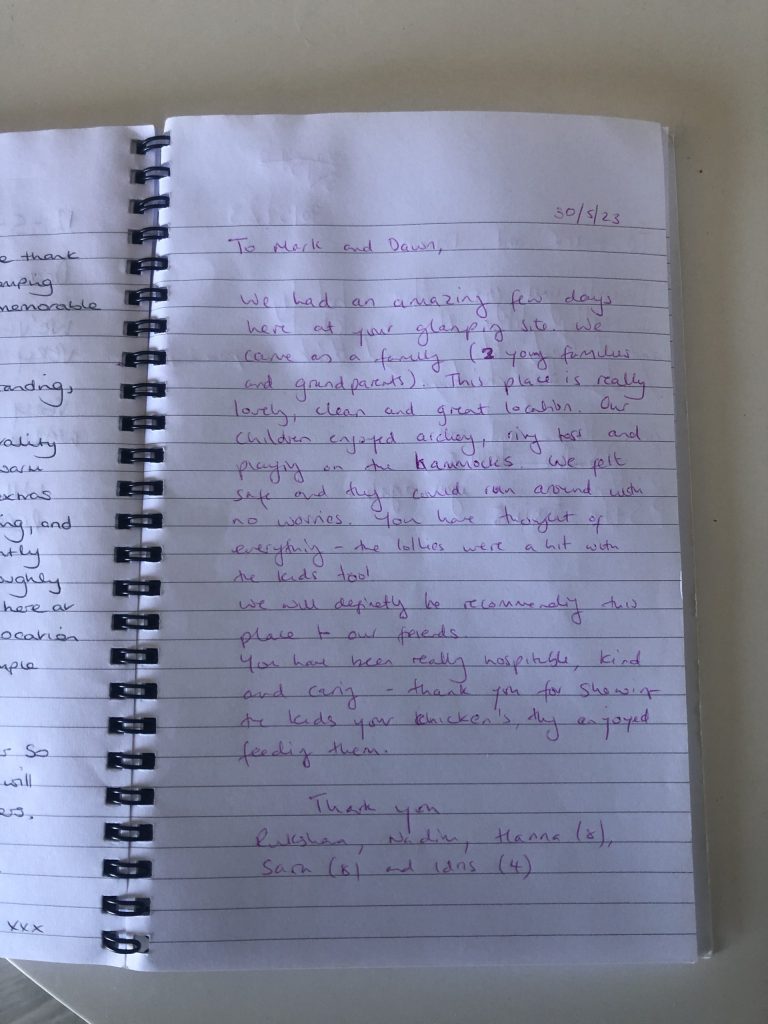 e thank
mping
memorable
anding,
rality
warm
extras
ng, and
ntly
oughly
here at
location
mple
r so
will
ers.
xxx
30/5/23
To Mark and Dawn,
We had an amazing few days
here at your glamping site. We
came as a family (2 young families
and grandparents). This place is really
lovely, clean and great location. Our
children enjoyed archery, ring toss and
playing on the hammocks. We felt
safe and they could run around with
no worries. You have thought of
everything - the lollies were a hit with
the kids too!
We will definetly be recommending this
place to our friends.
You have been really hospitable, kind
and caring - thank you for showing
the kids your chicken's, they enjoyed
feeding them.
Thank you
Rukshan, Nadim, Hanna (8),
Sara (8) and Idris (4)